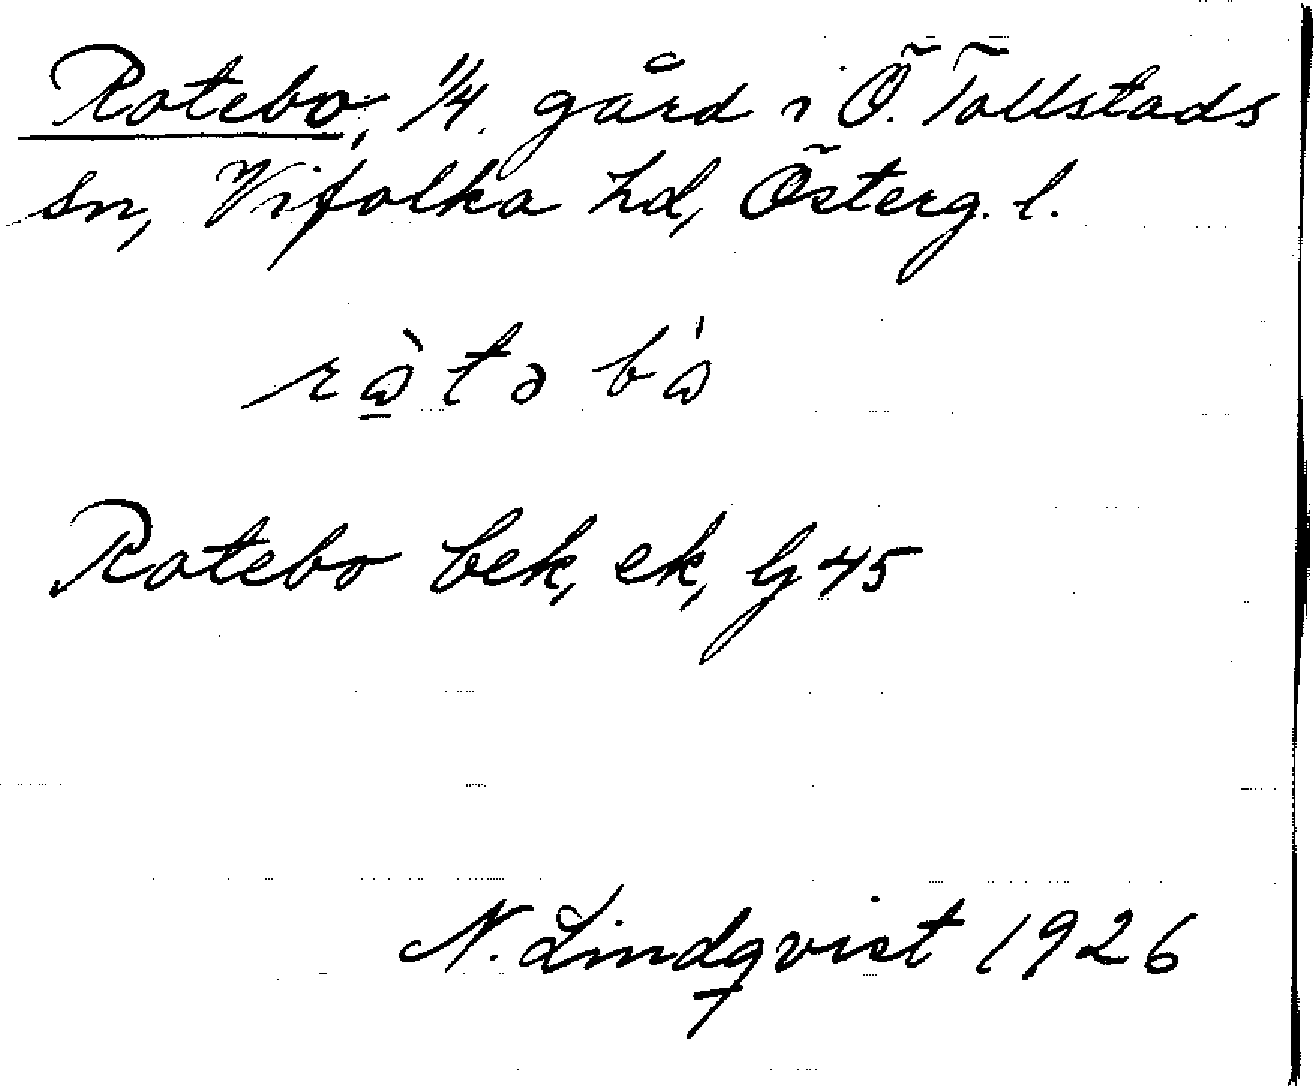 Rotebo, 1/4 gård i Ö. Tollstads
sn, Vifolka hd, Österg. l.
rωtə bω
Rotebo bek, ek, G 45
N. Lindqvist 1926